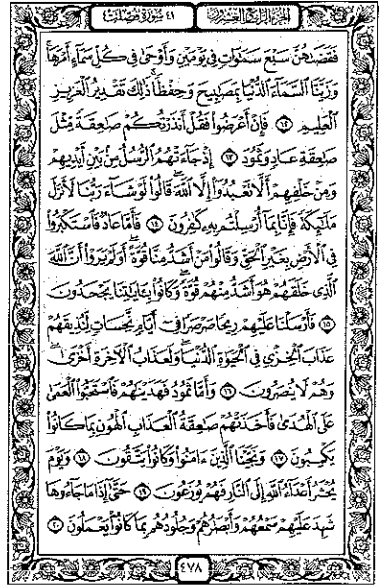 الجزء الرابع والعشرون
٤١ سورة فصلت
فَقَضَىٰهُنَّ سَبْعَ سَمَٰوَاتٍ فِي يَوْمَيْنِ وَأَوْحَىٰ فِي كُلِّ سَمَآءٍ أَمْرَهَا
وَزَيَّنَّا ٱلسَّمَآءَ ٱلدُّنْيَا بِمَصَٰبِيحَ وَحِفْظًا ذَٰلِكَ تَقْدِيرُ ٱلْعَزِيزِ
ٱلْعَلِيمِ ١٢ فَإِنْ أَعْرَضُوا۟ فَقُلْ أَنذَرْتُكُمْ صَٰعِقَةً مِّثْلَ
صَٰعِقَةِ عَادٍ وَثَمُودَ ١٣ إِذْ جَآءَتْهُمُ ٱلرُّسُلُ مِنۢ بَيْنِ أَيْدِيهِمْ
وَمِنْ خَلْفِهِمْ أَلَّا تَعْبُدُوٓا۟ إِلَّا ٱللَّهَ قَالُوا۟ لَوْ شَآءَ رَبُّنَا لَأَنزَلَ
مَلَٰٓئِكَةً فَإِنَّا بِمَآ أُرْسِلْتُم بِهِۦ كَٰفِرُونَ ١٤ فَأَمَّا عَادٌ فَٱسْتَكْبَرُوا۟
فِي ٱلْأَرْضِ بِغَيْرِ ٱلْحَقِّ وَقَالُوا۟ مَنْ أَشَدُّ مِنَّا قُوَّةً أَوَلَمْ يَرَوْا۟ أَنَّ ٱللَّهَ
ٱلَّذِي خَلَقَهُمْ هُوَ أَشَدُّ مِنْهُمْ قُوَّةً وَكَانُوا۟ بِـَٔايَٰتِنَا يَجْحَدُونَ
١٥ فَأَرْسَلْنَا عَلَيْهِمْ رِيحًا صَرْصَرًا فِيٓ أَيَّامٍ نَّحِسَاتٍ لِّنُذِيقَهُمْ
عَذَابَ ٱلْخِزْيِ فِي ٱلْحَيَوٰةِ ٱلدُّنْيَا وَلَعَذَابُ ٱلْءَاخِرَةِ أَخْزَىٰ
وَهُمْ لَا يُنصَرُونَ ١٦ وَأَمَّا ثَمُودُ فَهَدَيْنَٰهُمْ فَٱسْتَحَبُّوا۟ ٱلْعَمَىٰ
عَلَى ٱلْهُدَىٰ فَأَخَذَتْهُمْ صَٰعِقَةُ ٱلْعَذَابِ ٱلْهُونِ بِمَا كَانُوا۟
يَكْسِبُونَ ١٧ وَنَجَّيْنَا ٱلَّذِينَ ءَامَنُوا۟ وَكَانُوا۟ يَتَّقُونَ ١٨ وَيَوْمَ
يُحْشَرُ أَعْدَآءُ ٱللَّهِ إِلَى ٱلنَّارِ فَهُمْ يُوزَعُونَ ١٩ حَتَّىٰٓ إِذَا مَا جَآءُوهَا
شَهِدَ عَلَيْهِمْ سَمْعُهُمْ وَأَبْصَٰرُهُمْ وَجُلُودُهُم بِمَا كَانُوا۟ يَعْمَلُونَ ٢٠
٤٧٨